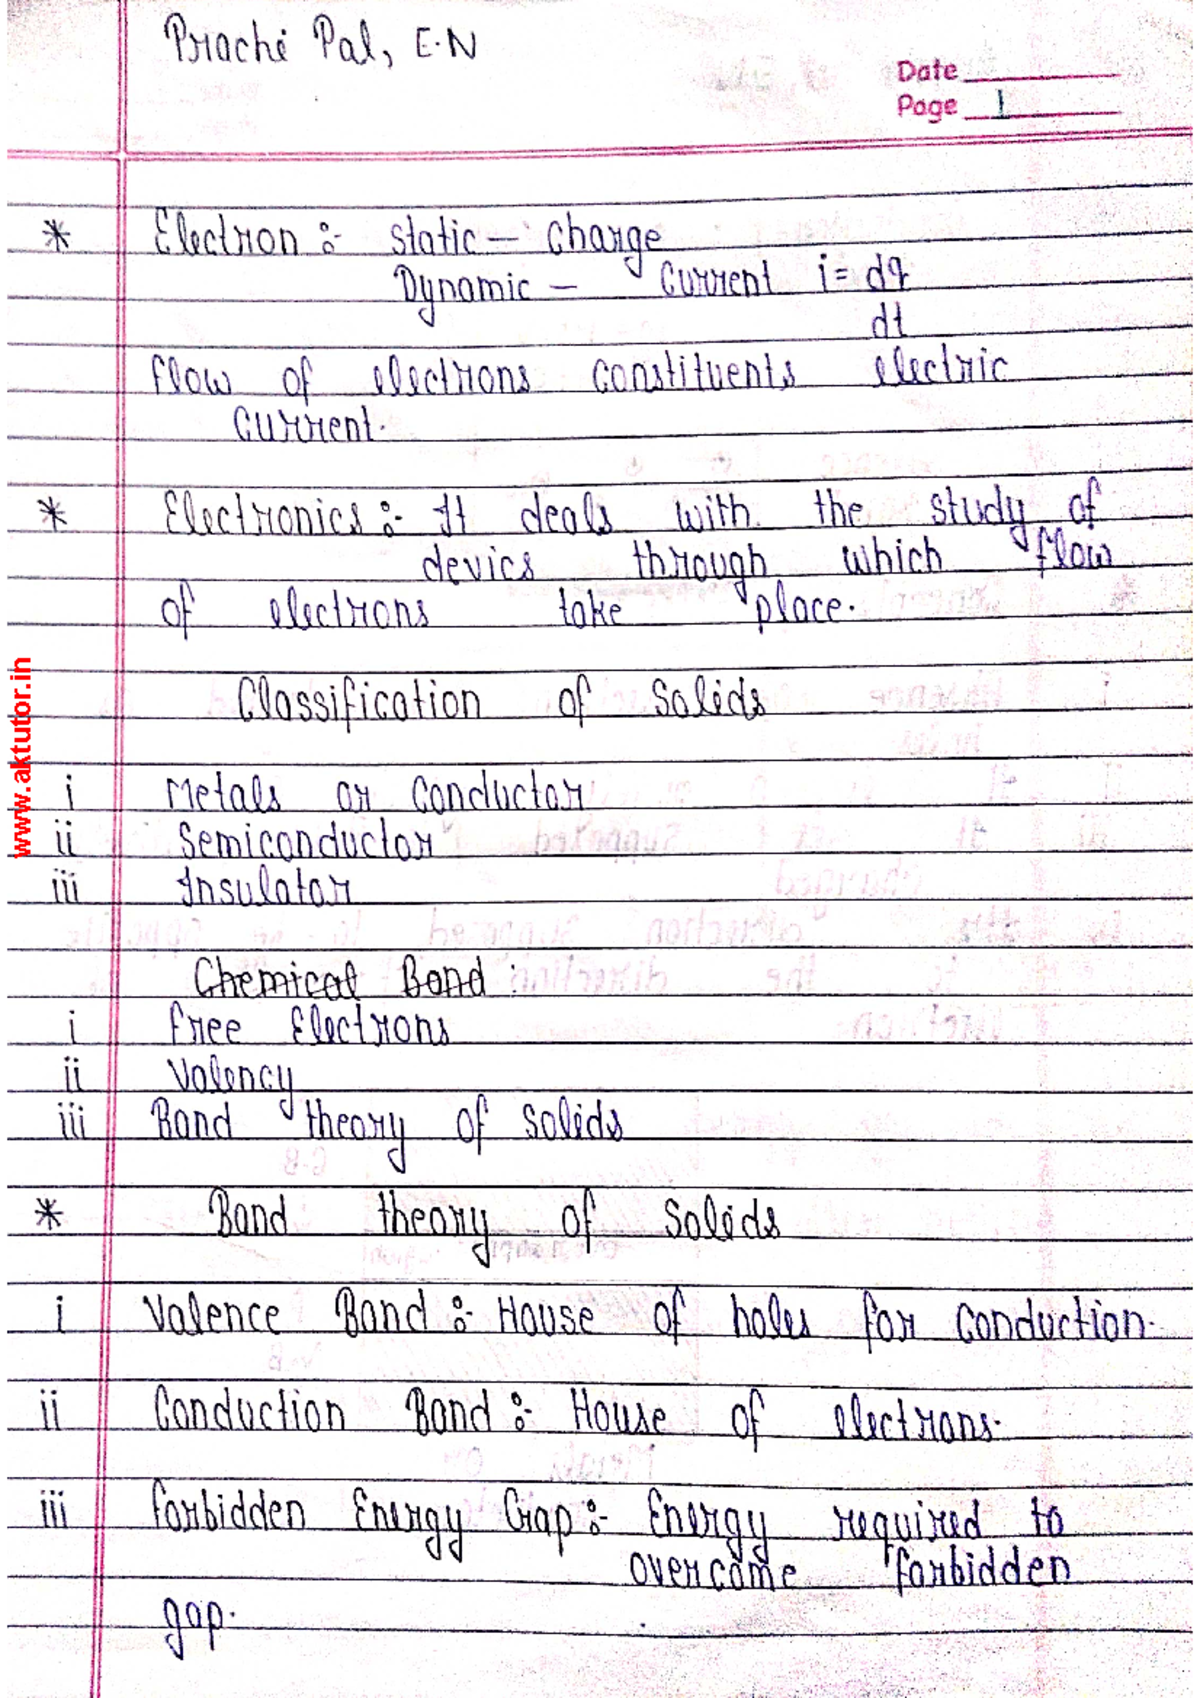 Prachi Pal, E.N
Date
Page 1
* Electron :- static - Charge
Dynamic - Current i = dq
dt
flow of electrons constituents electric
Current.
* Electronics :- It deals with the study of
devics through which flow
of electrons take place.
Classification of Solids
i Metals or Conductor
ii Semiconductor
iii Insulator
Chemical Bond :
i free Electrons
ii Valency
iii Band theory of Solids
* Band theory of Solids
i Valence Band :- House of holes for Conduction.
ii Conduction Band :- House of electrons.
iii forbidden Energy Gap :- Energy required to
overcome forbidden
gap.
www.aktutor.in